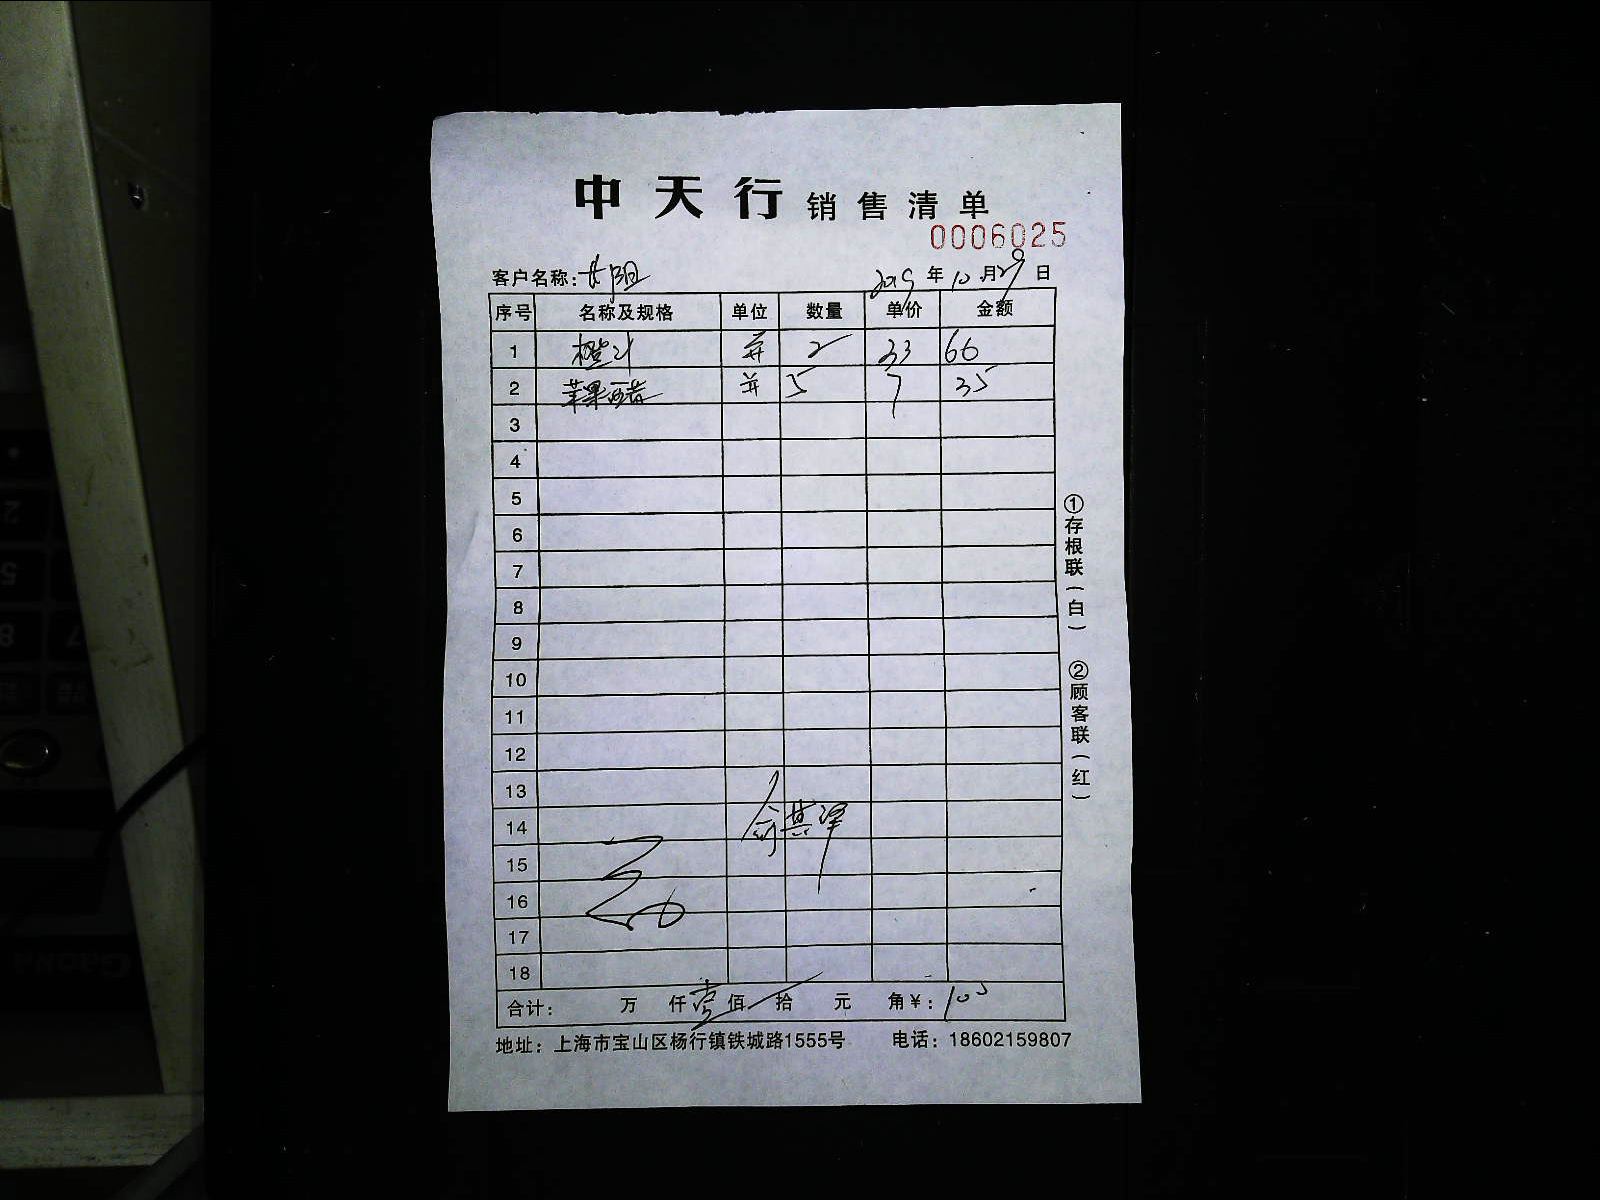 中天行 销售清单
0006025
客户名称: 长阳 2019 年 10 月 29 日
序号 名称及规格 单位 数量 单价 金额
1 橙汁 2 33 66
2 苹果醋 5 7 35
3
4
5
6
7
8
9
10
11
12
13
14
15
16
17
18
合计: 万 仟 壹 佰 拾 元 角 ¥:
地址: 上海市宝山区杨行镇铁城路1555号 电话: 18602159807
①存根联(白) ②顾客联(红)